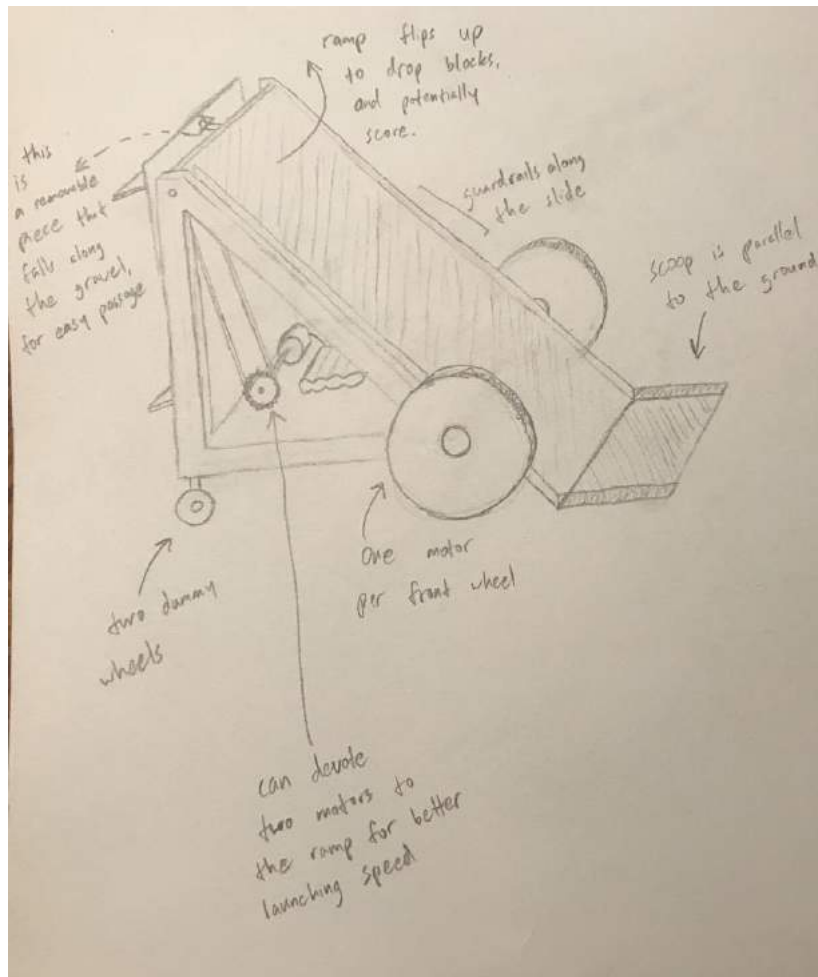 ramp flips up
to drop blocks,
and potentially
score.
this
is
a removable
piece that
falls along
the gravel,
for easy passage
guardrails along
the slide
scoop is parallel
to the ground
two dummy
wheels
One motor
per front wheel
can devote
two motors to
the ramp for better
launching speed